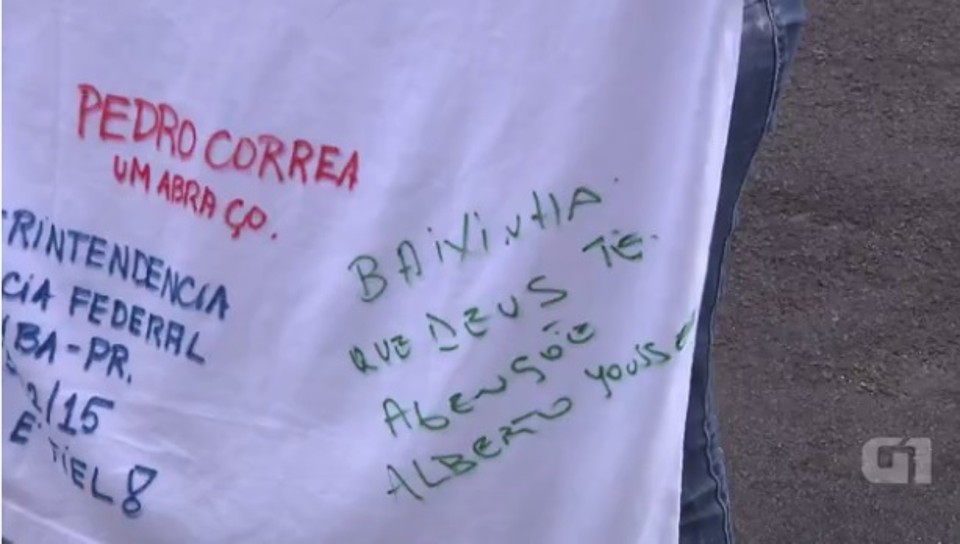 PEDRO CORREA
UM ABRAÇO.
RINTENDENCIA
CIA FEDERAL
BA-PR.
2/15
É FIEL!
BAIXINHA
QUE DEUS TE
ABENSÕE
ALBERTO YOUSSE
G1